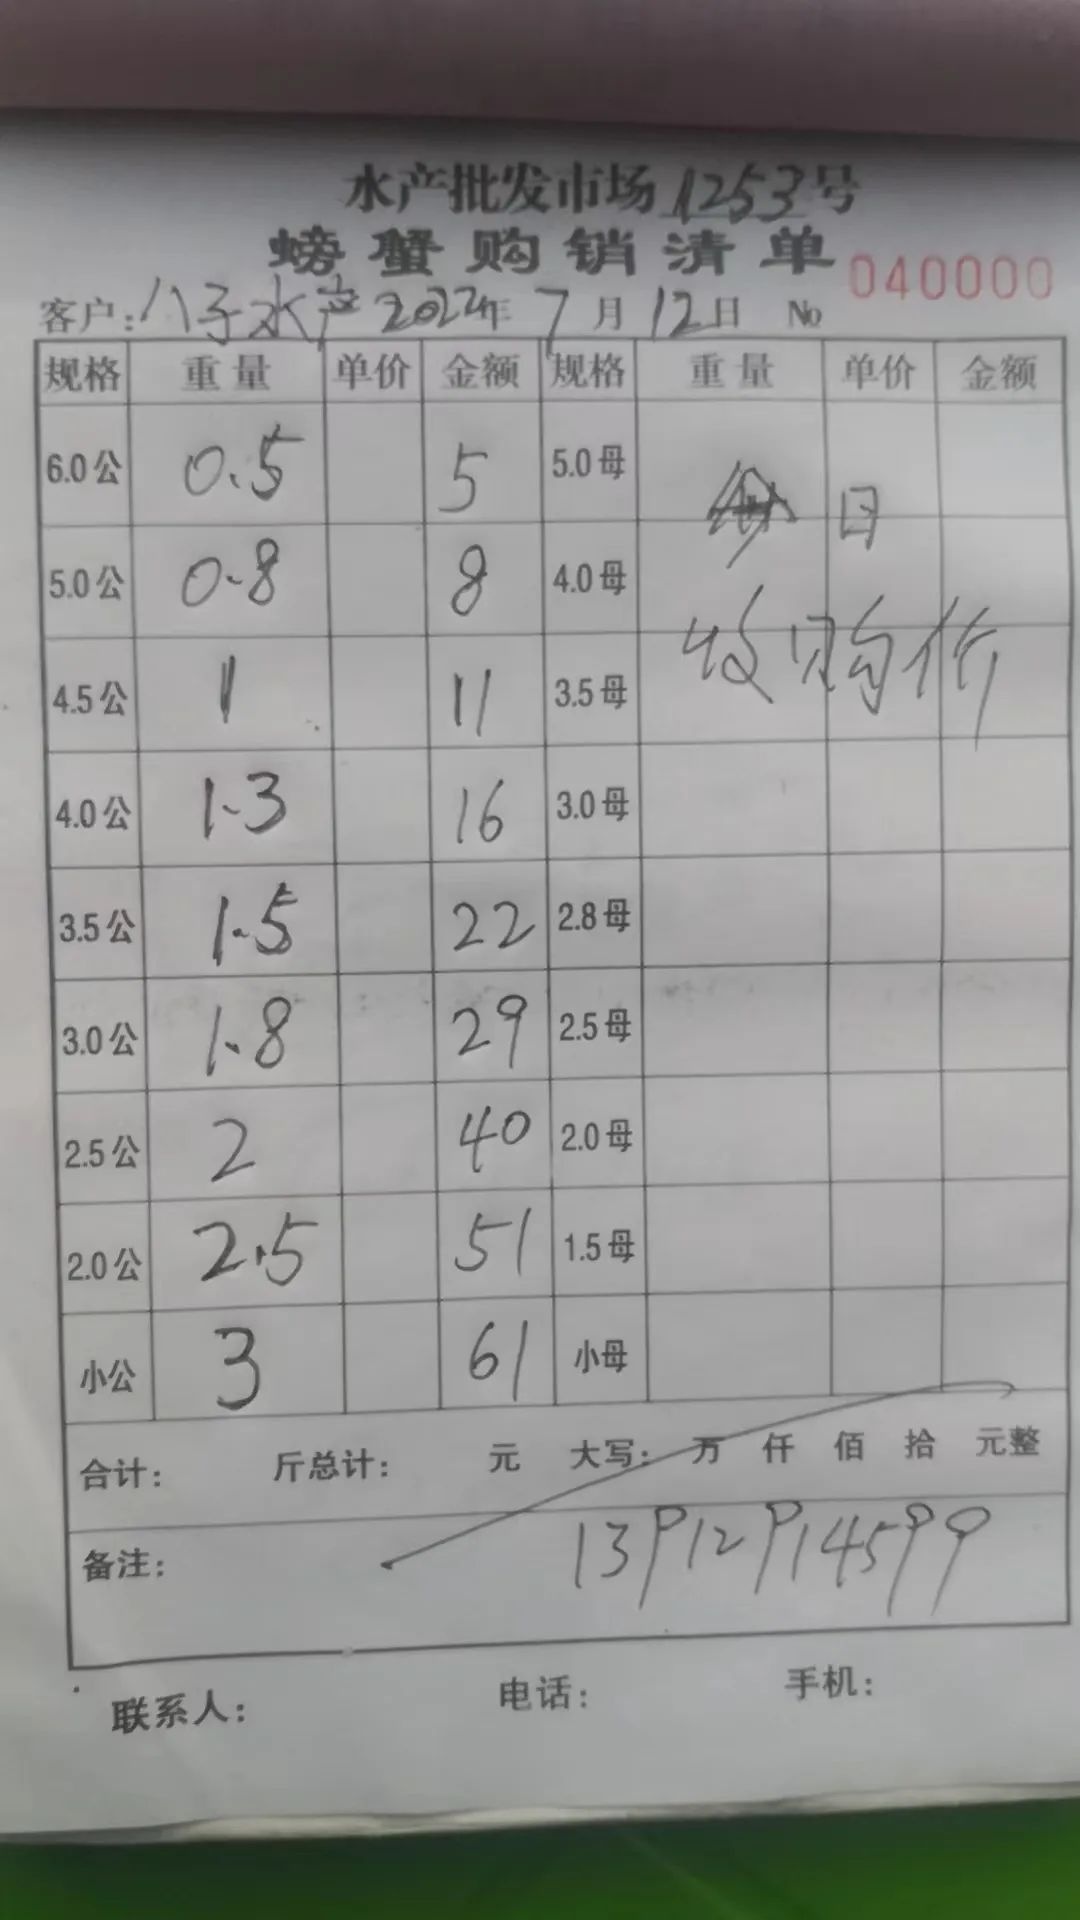 水产批发市场1253号
螃蟹购销清单
040000
客户:八子水产 2022年 7月 12日 No
规格 重量 单价 金额 规格 重量 单价 金额
6.0公 0.5 5 5.0母
日
5.0公 0.8 8 4.0母
收购价
4.5公 1 11 3.5母
4.0公 1.3 16 3.0母
3.5公 1.5 22 2.8母
3.0公 1.8 29 2.5母
2.5公 2 40 2.0母
2.0公 2.5 51 1.5母
小公 3 61 小母
合计: 斤总计: 元 大写: 万 仟 佰 拾 元整
备注: 13912914599
联系人: 电话: 手机: